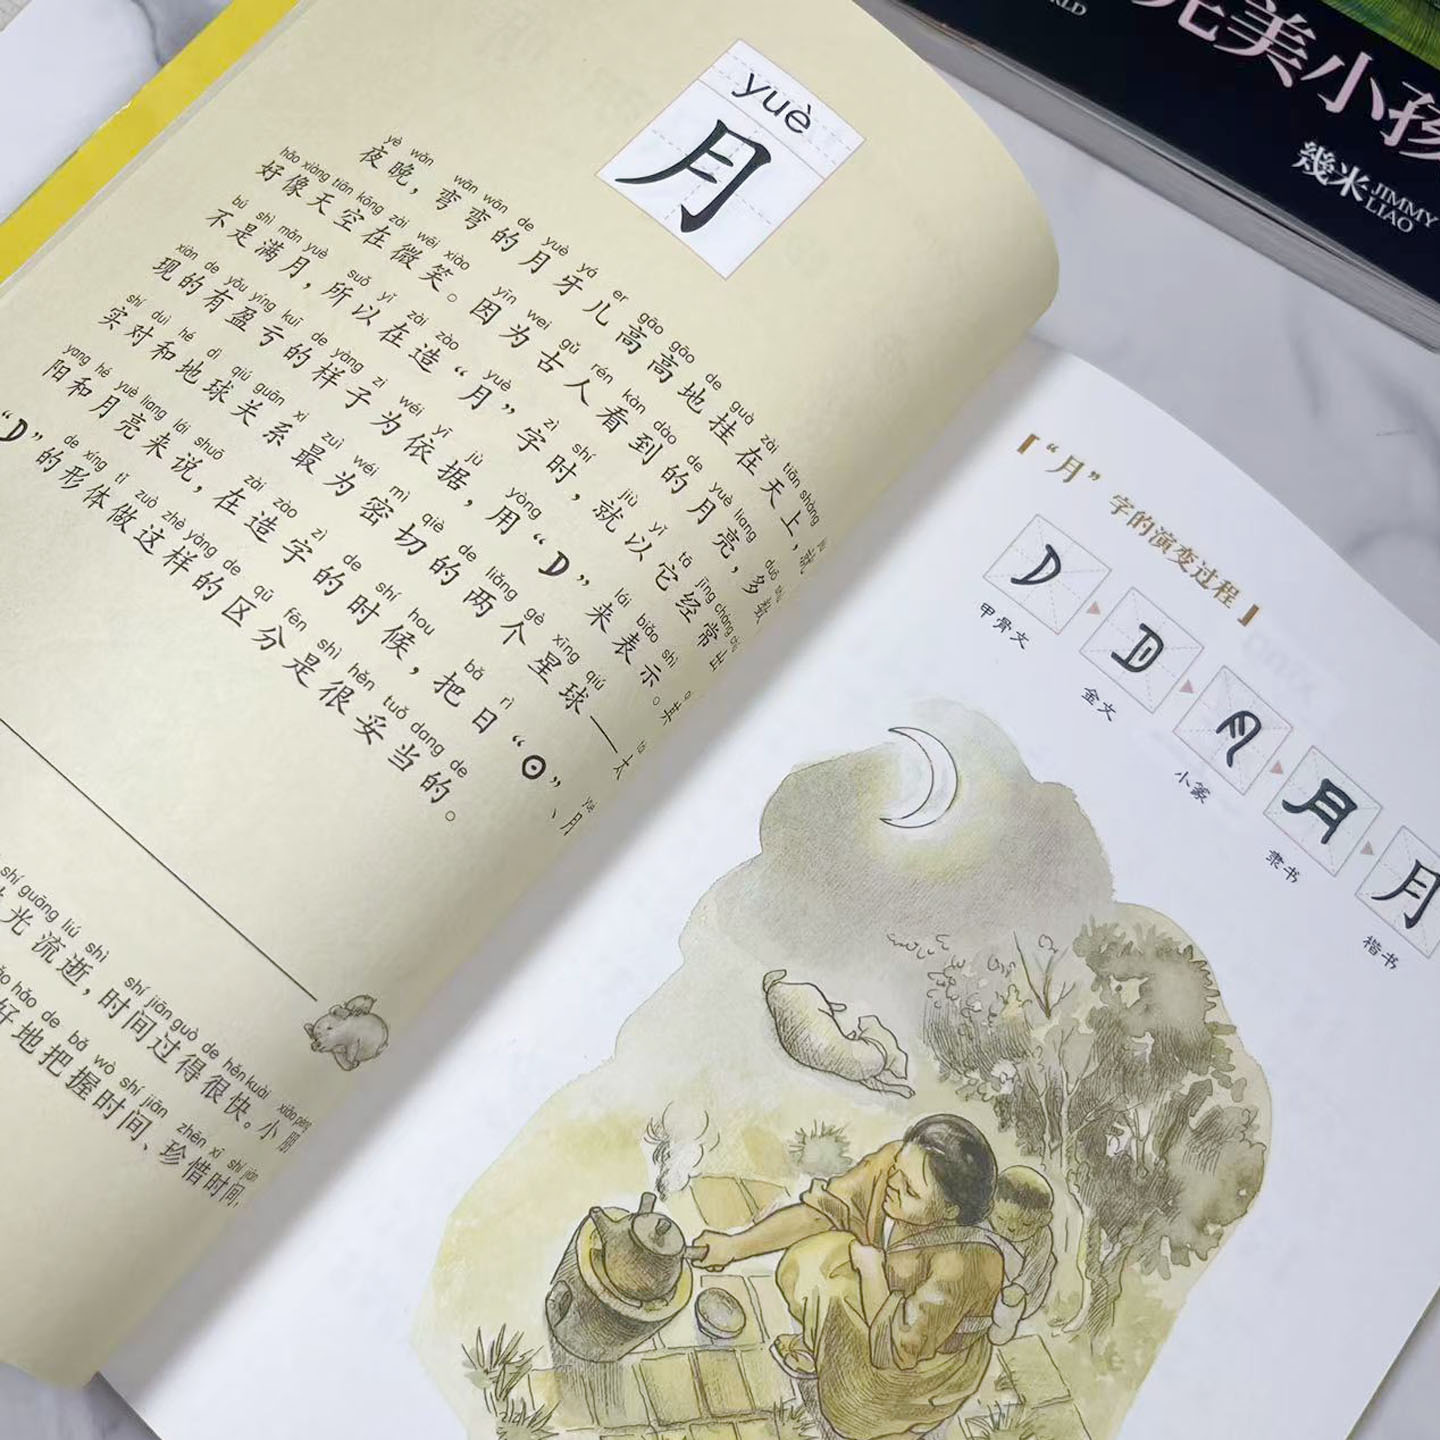 yuè
月
yè wǎn wān wān de yuè yá er gāo gāo de guà zài tiān shàng
夜晚，弯弯的月牙儿高高地挂在天上，就
hǎo xiàng tiān kōng zài wēi xiào yīn wei gǔ rén kàn dào de yuè liang duō shù
好像天空在微笑。因为古人看到的月亮，多数
bú shì mǎn yuè suǒ yǐ zài zào yuè zì shí jiù yǐ tā jīng cháng chū
不是满月，所以在造“月”字时，就以它经常出
xiàn de yǒu yíng kuī de yàng zi wéi yī jù yòng lái biǎo shì
现的有盈亏的样子为依据，用“D”来表示。其
shí duì hé dì qiú guān xi zuì wéi mì qiè de liǎng gè xīng qiú
实对和地球关系最为密切的两个星球——太
yang hé yuè liang lái shuō zài zào zì de shí hou bǎ rì yuè
阳和月亮来说，在造字的时候，把日“⊙”、月
de xíng tǐ zuò zhè yàng de qū fēn shì hěn tuǒ dang de
“D”的形体做这样的区分是很妥当的。
shí guāng liú shì shí jiān guò de hěn kuài xiǎo péng
光流逝，时间过得很快。小朋
hǎo de bǎ wò shí jiān zhēn xī shí jiān
好地把握时间、珍惜时间
【“月”字的演变过程】
甲骨文
金文
小篆
隶书
月
楷书
完美小孩
幾米 JIMMY LIAO